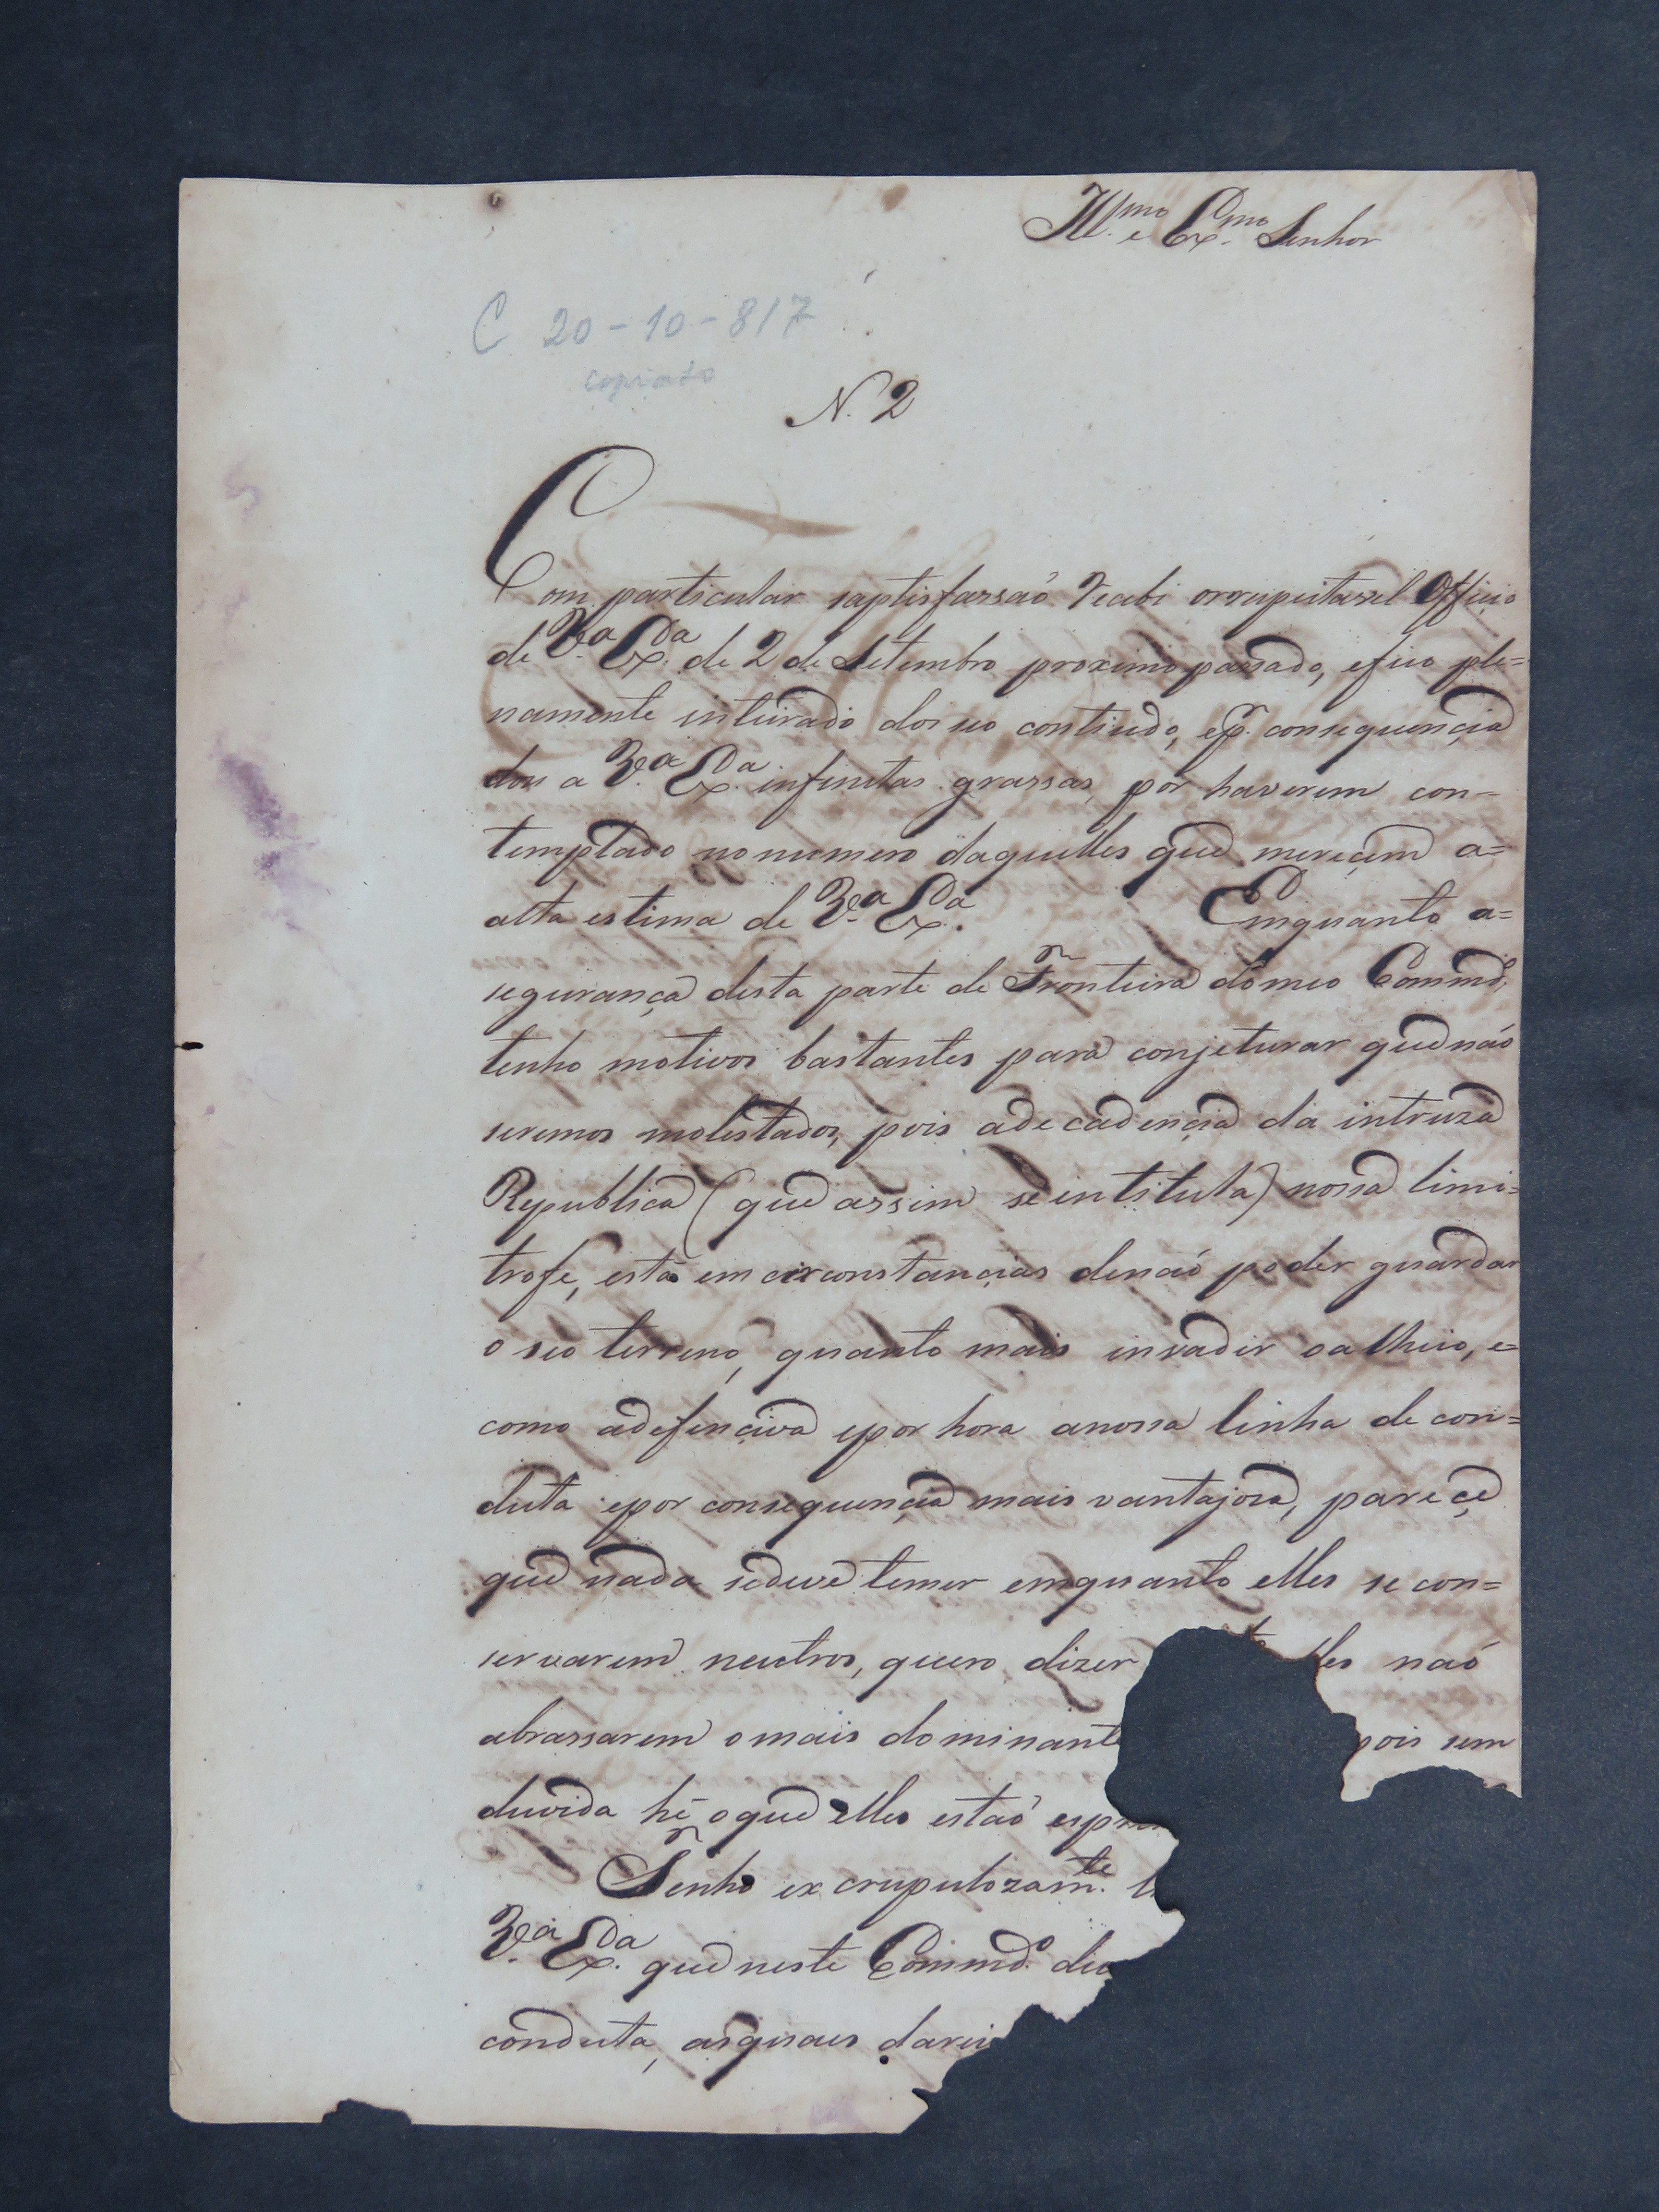 Ill.mo e Ex.mo Senhor
C 20-10-817
copiado
N. 2
Com particular saptisfassaõ recebi orrespeitavel Officio
de V.a Ex.a de 2 de Setembro proximo passado, efico ple=
namente inteirado doseo contiudo, ep.r consequençia
dou a V.a Ex.a infinitas grassas, por haverem con-
templado nonumero daquelles que mereçem a=
alta estima de V.a Ex.a Emquanto a=
segurança desta parte de Fronteira domeo Commd.o,
tenho motivos bastantes para conjeturar quenaõ
seremos molestados, pois adecadençia da intruza
Republica (que assim se intitula) nossa limi=
trofe, está em circonstançias denaõ poder guardar
o seo terreno, quanto mais invadir oalheio, e=
como adefençiva epor hora anossa linha de con=
duta epor consequençia mais vantajoza, pareçe
que nada sedeve temer emquanto elles se con=
servarem neutros, quero dizer lles naõ
abrassarem omais dominante pois sem
duvida hé oque elles estaõ
Tenho excrupulozam.te
V.a Ex.a queneste Commd.o
conduta, asquaes darei